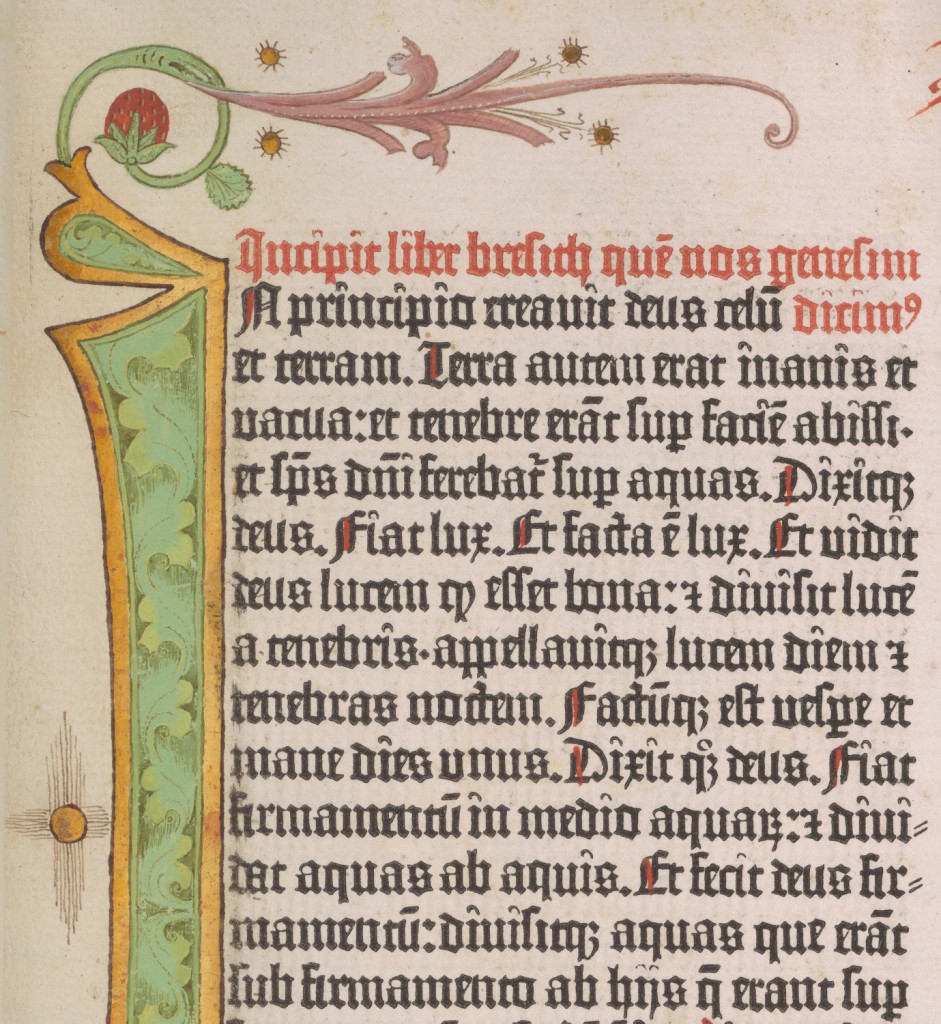 Incipit liber bresith quē nos genesim
IN principio creavit deus celū dicimꝰ
et terram. Terra autem erat inanis et
vacua: et tenebre erāt sup faciē abissi·
et spūs dn̄i ferebat̄ sup aquas. Dixitqꝫ
deus. Fiat lux. Et facta ē lux. Et vidit
deus lucem ꝙ esset bona: ⁊ divisit lucē
a tenebris· appellavitqꝫ lucem diem ⁊
tenebras noctem. Factūqꝫ est vespe et
mane dies unus. Dixit qꝫ deus. Fiat
firmamentū in medio aquaꝝ: ⁊ divi⸗
dat aquas ab aquis. Et fecit deus fir⸗
mamentū: divisitqꝫ aquas que erāt
sub firmamento ab hijs q̄ erant sup